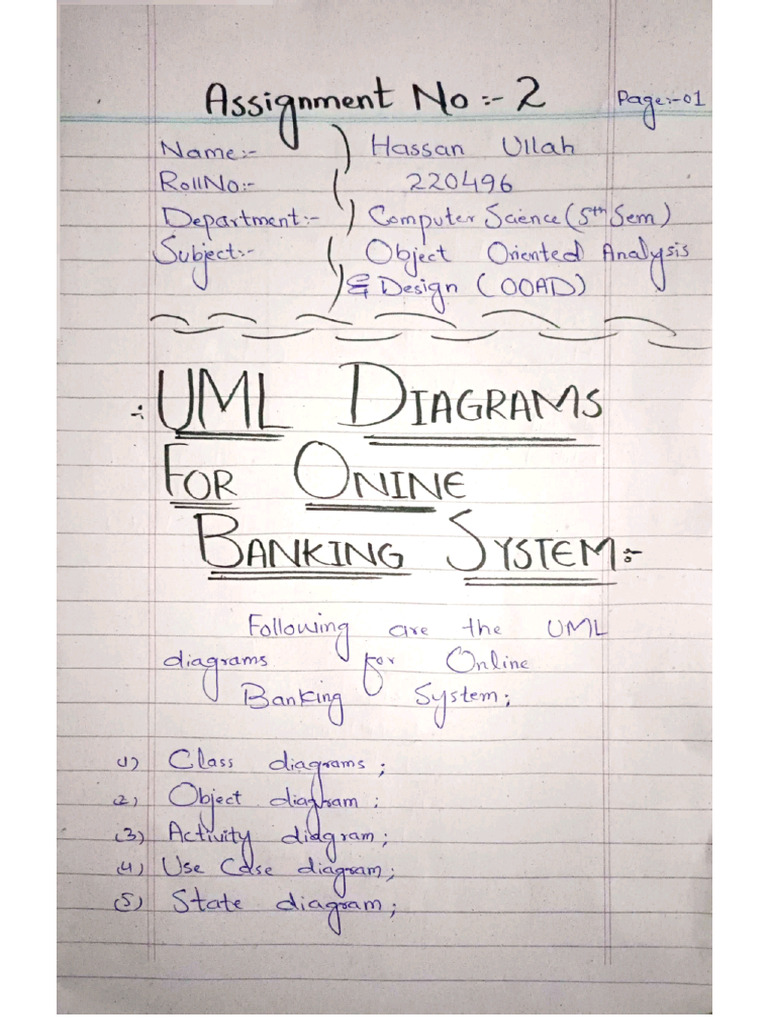 Assignment No:- 2
Page:-01
Name:- ) Hassan Ullah
RollNo:- ( 220496
Department:- ) Computer Science (5th Sem)
Subject:- ( Object Oriented Analysis
) & Design (OOAD)
:UML DIAGRAMS
FOR ONINE
BANKING SYSTEM:-
Following are the UML
diagrams for Online
Banking System;
(1) Class diagrams;
(2) Object diagram;
(3) Activity diagram;
(4) Use Case diagram;
(5) State diagram;